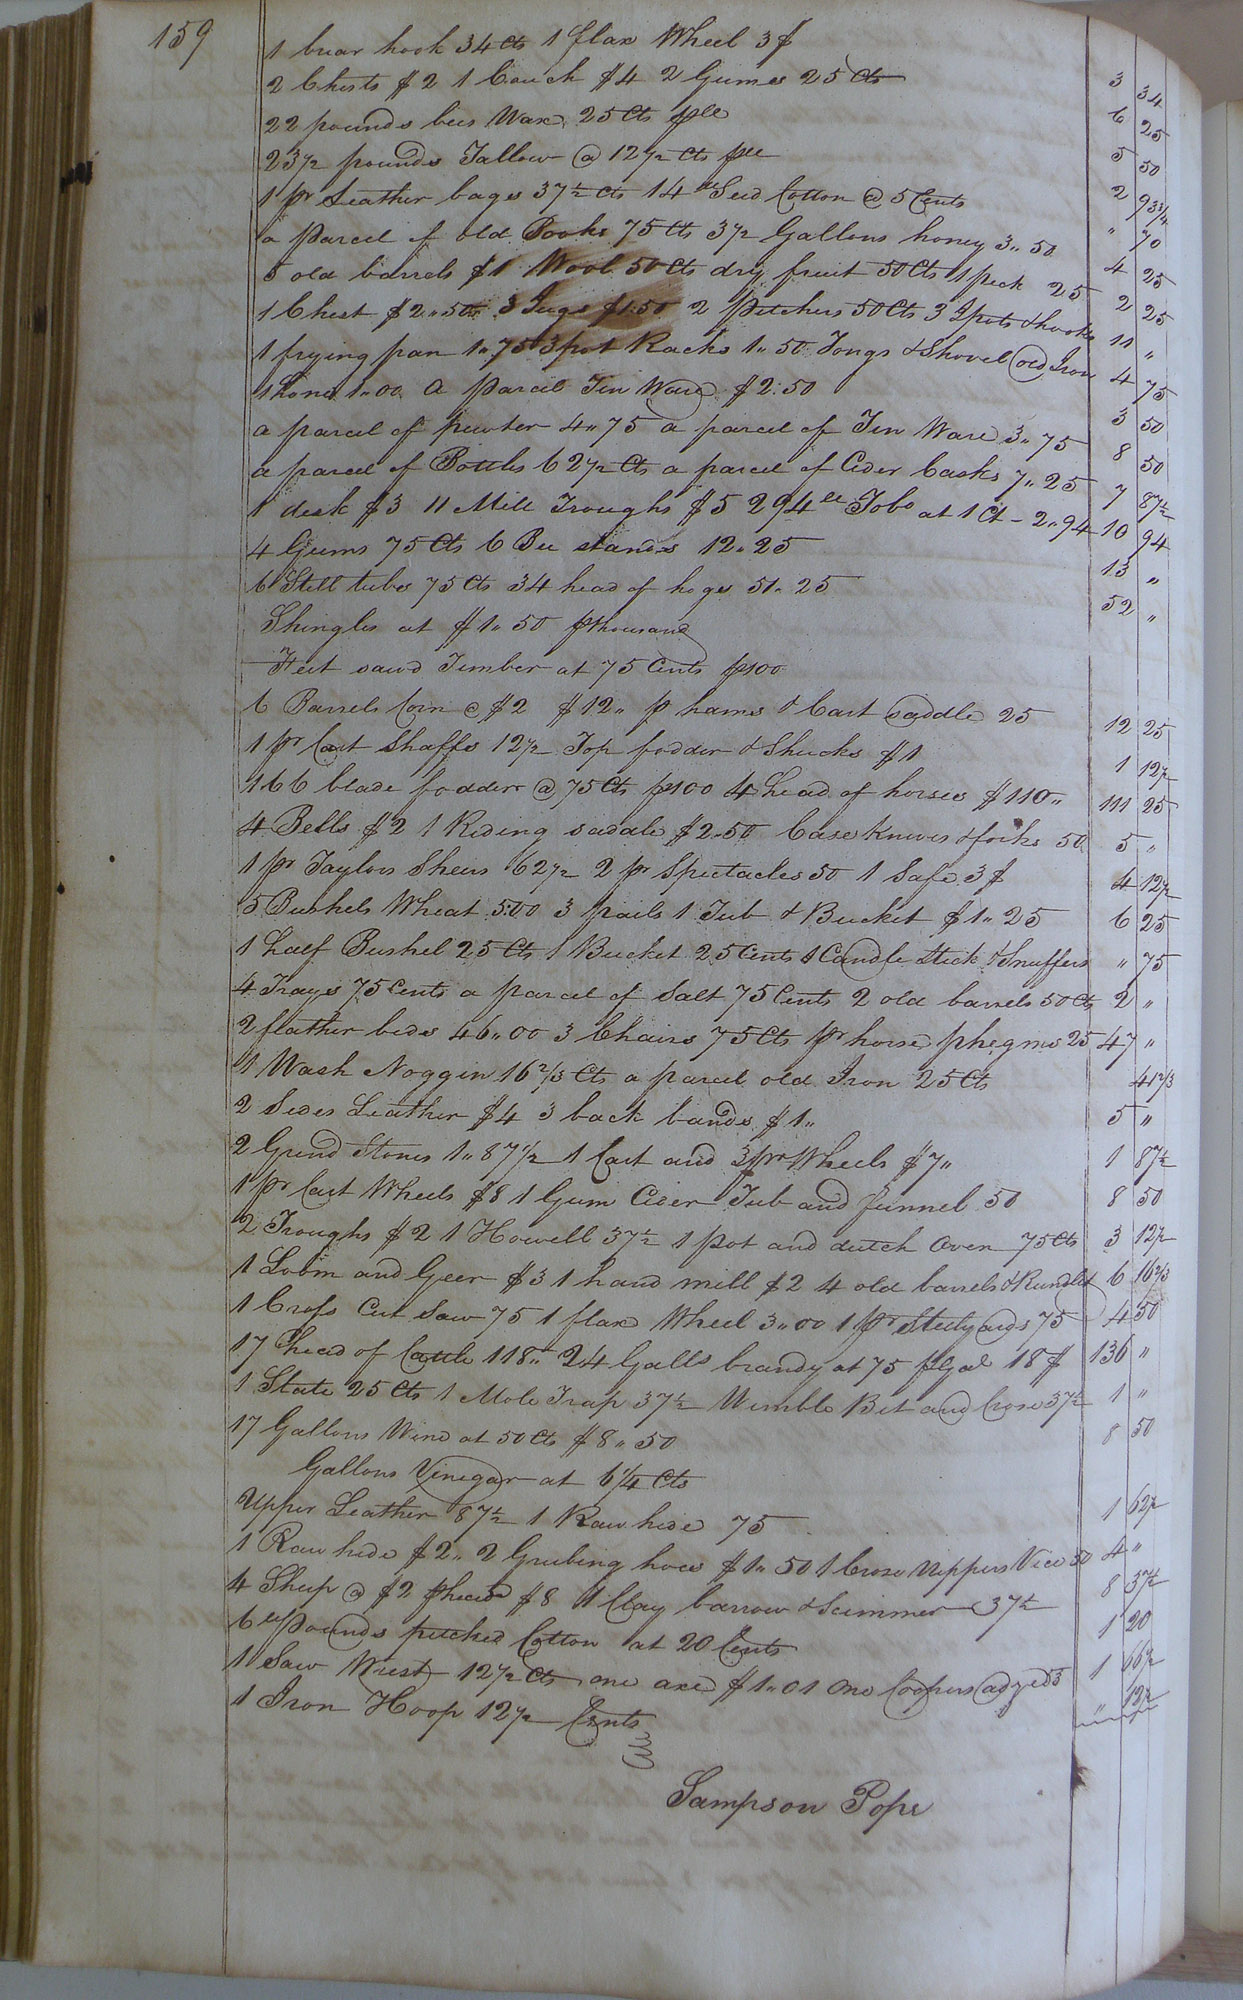 159
1 briar hook 34 Cts 1 flax Wheel 3 $ 3 34
2 Chests $ 2 1 Couch $ 4 2 Gums 25 Cts 6 25
22 pounds bees Wax 25 Cts pll 5 50
23 1/2 pounds Tallow @ 12 1/2 Cts pll 2 93 3/4
1 pr Leather bags 37 1/2 Cts 14 ll Seed Cotton @ 5 Cents " 70
a parcel of old Books 75 Cts 3 1/2 Gallons honey 3 " 50 4 25
5 old barrels $ 1 Wool 50 Cts dry fruit 50 Cts 1 peck 25 2 25
1 Chest $ 2 " 50 3 Jugs $ 1.50 2 pitchers 50 Cts 3 pots & hooks 11 "
1 frying pan 1 " 75 3 pot Racks 1 " 50 Tongs & Shovel old Iron 4 75
1 hone 1 " 00 a parcel Tin Ware $ 2.50 3 50
a parcel of pewter 4 " 75 a parcel of Tin Ware 3 " 75 8 50
a parcel of Bottles 62 1/2 Cts a parcel of Cider Casks 7 " 25 7 87 1/2
1 desk $ 3 11 Mill Troughs $ 5 294 ll Tobo at 1 Ct - 2 " 94 10 94
4 Gums 75 Cts 6 Bee stands 12 " 25 13 "
6 Still tubs 75 Cts 34 head of hogs 51 " 25 52 "
Shingles at $ 1 " 50 p thousand
Feet sawd Timber at 75 Cents p100
6 Barrels Corn @ $ 2 $ 12 " p hams & Cart Saddle 25 12 25
1 pr Cart Shaffs 12 1/2 Top fodder & Shucks $ 1 1 12 1/2
166 blade fodder @ 75 Cts p100 4 head of horses $ 110 " 111 25
4 Bells $ 2 1 Riding saddle $ 2.50 Case Knives & forks 50 5 "
1 pr Taylors Shears 62 1/2 2 pr Spectacles 50 1 Safe 3 $ 4 12 1/2
5 Bushels Wheat 5.00 3 pails 1 Tub & Bucket $ 1 " 25 6 25
1 half Bushel 25 Cts 1 Bucket 25 Cents 1 Candle Stick & Snuffers " 75
4 Trays 75 Cents a parcel of Salt 75 Cents 2 old barrels 50 Cts 2 "
2 feather beds 46 " 00 3 Chairs 75 Cts pr horse phegms 25 47 "
1 Wash Noggin 16 2/3 Cts a parcel old Iron 25 Cts 41 2/3
2 Sides Leather $ 4 3 back bands $ 1 " 5 "
2 Grind Stones 1 " 87 1/2 1 Cart and 3 pr Wheels $ 7 " 1 87 1/2
1 pr Cart Wheels $ 8 1 Gum Cider Tub and funnel 50 8 50
2 Troughs $ 2 1 Howell 37 1/2 1 pot and dutch Oven 75 Cts 3 12 1/2
1 Loom and Geer $ 3 1 hand mill $ 2 4 old barrels & Rundlet 6 16 2/3
1 Cross Cut Saw 75 1 flax Wheel 3 " 00 1 pr Steelyards 75 4 50
17 head of Cattle 118 " 24 Galls brandy at 75 p Gal 18 $ 136 "
1 Slate 25 Cts 1 Mole Trap 37 1/2 Wimble Bit and Croze 37 1/2 1 "
17 Gallons Wine at 50 Cts $ 8 " 50 8 50
Gallons Vinegar at 6 1/4 Cts
Upper Leather 87 1/2 1 Raw hide 75 1 62 1/2
1 Raw hide $ 2 " 2 Grubing hoes $ 1 " 50 1 Croze Nippers Vice 50 4 "
4 Sheep @ $ 2 p head $ 8 1 Clay barrow & Scimmer 37 1/2 8 37 1/2
6 ll pounds picked Cotton at 20 Cents 1 20
1 Saw Wrest 12 1/2 Cts one axe $ 1 " 01 one Coopers adze 53 1 66 1/2
1 Iron Hoop 12 1/2 Cents " 12 1/2
Sampson Pope